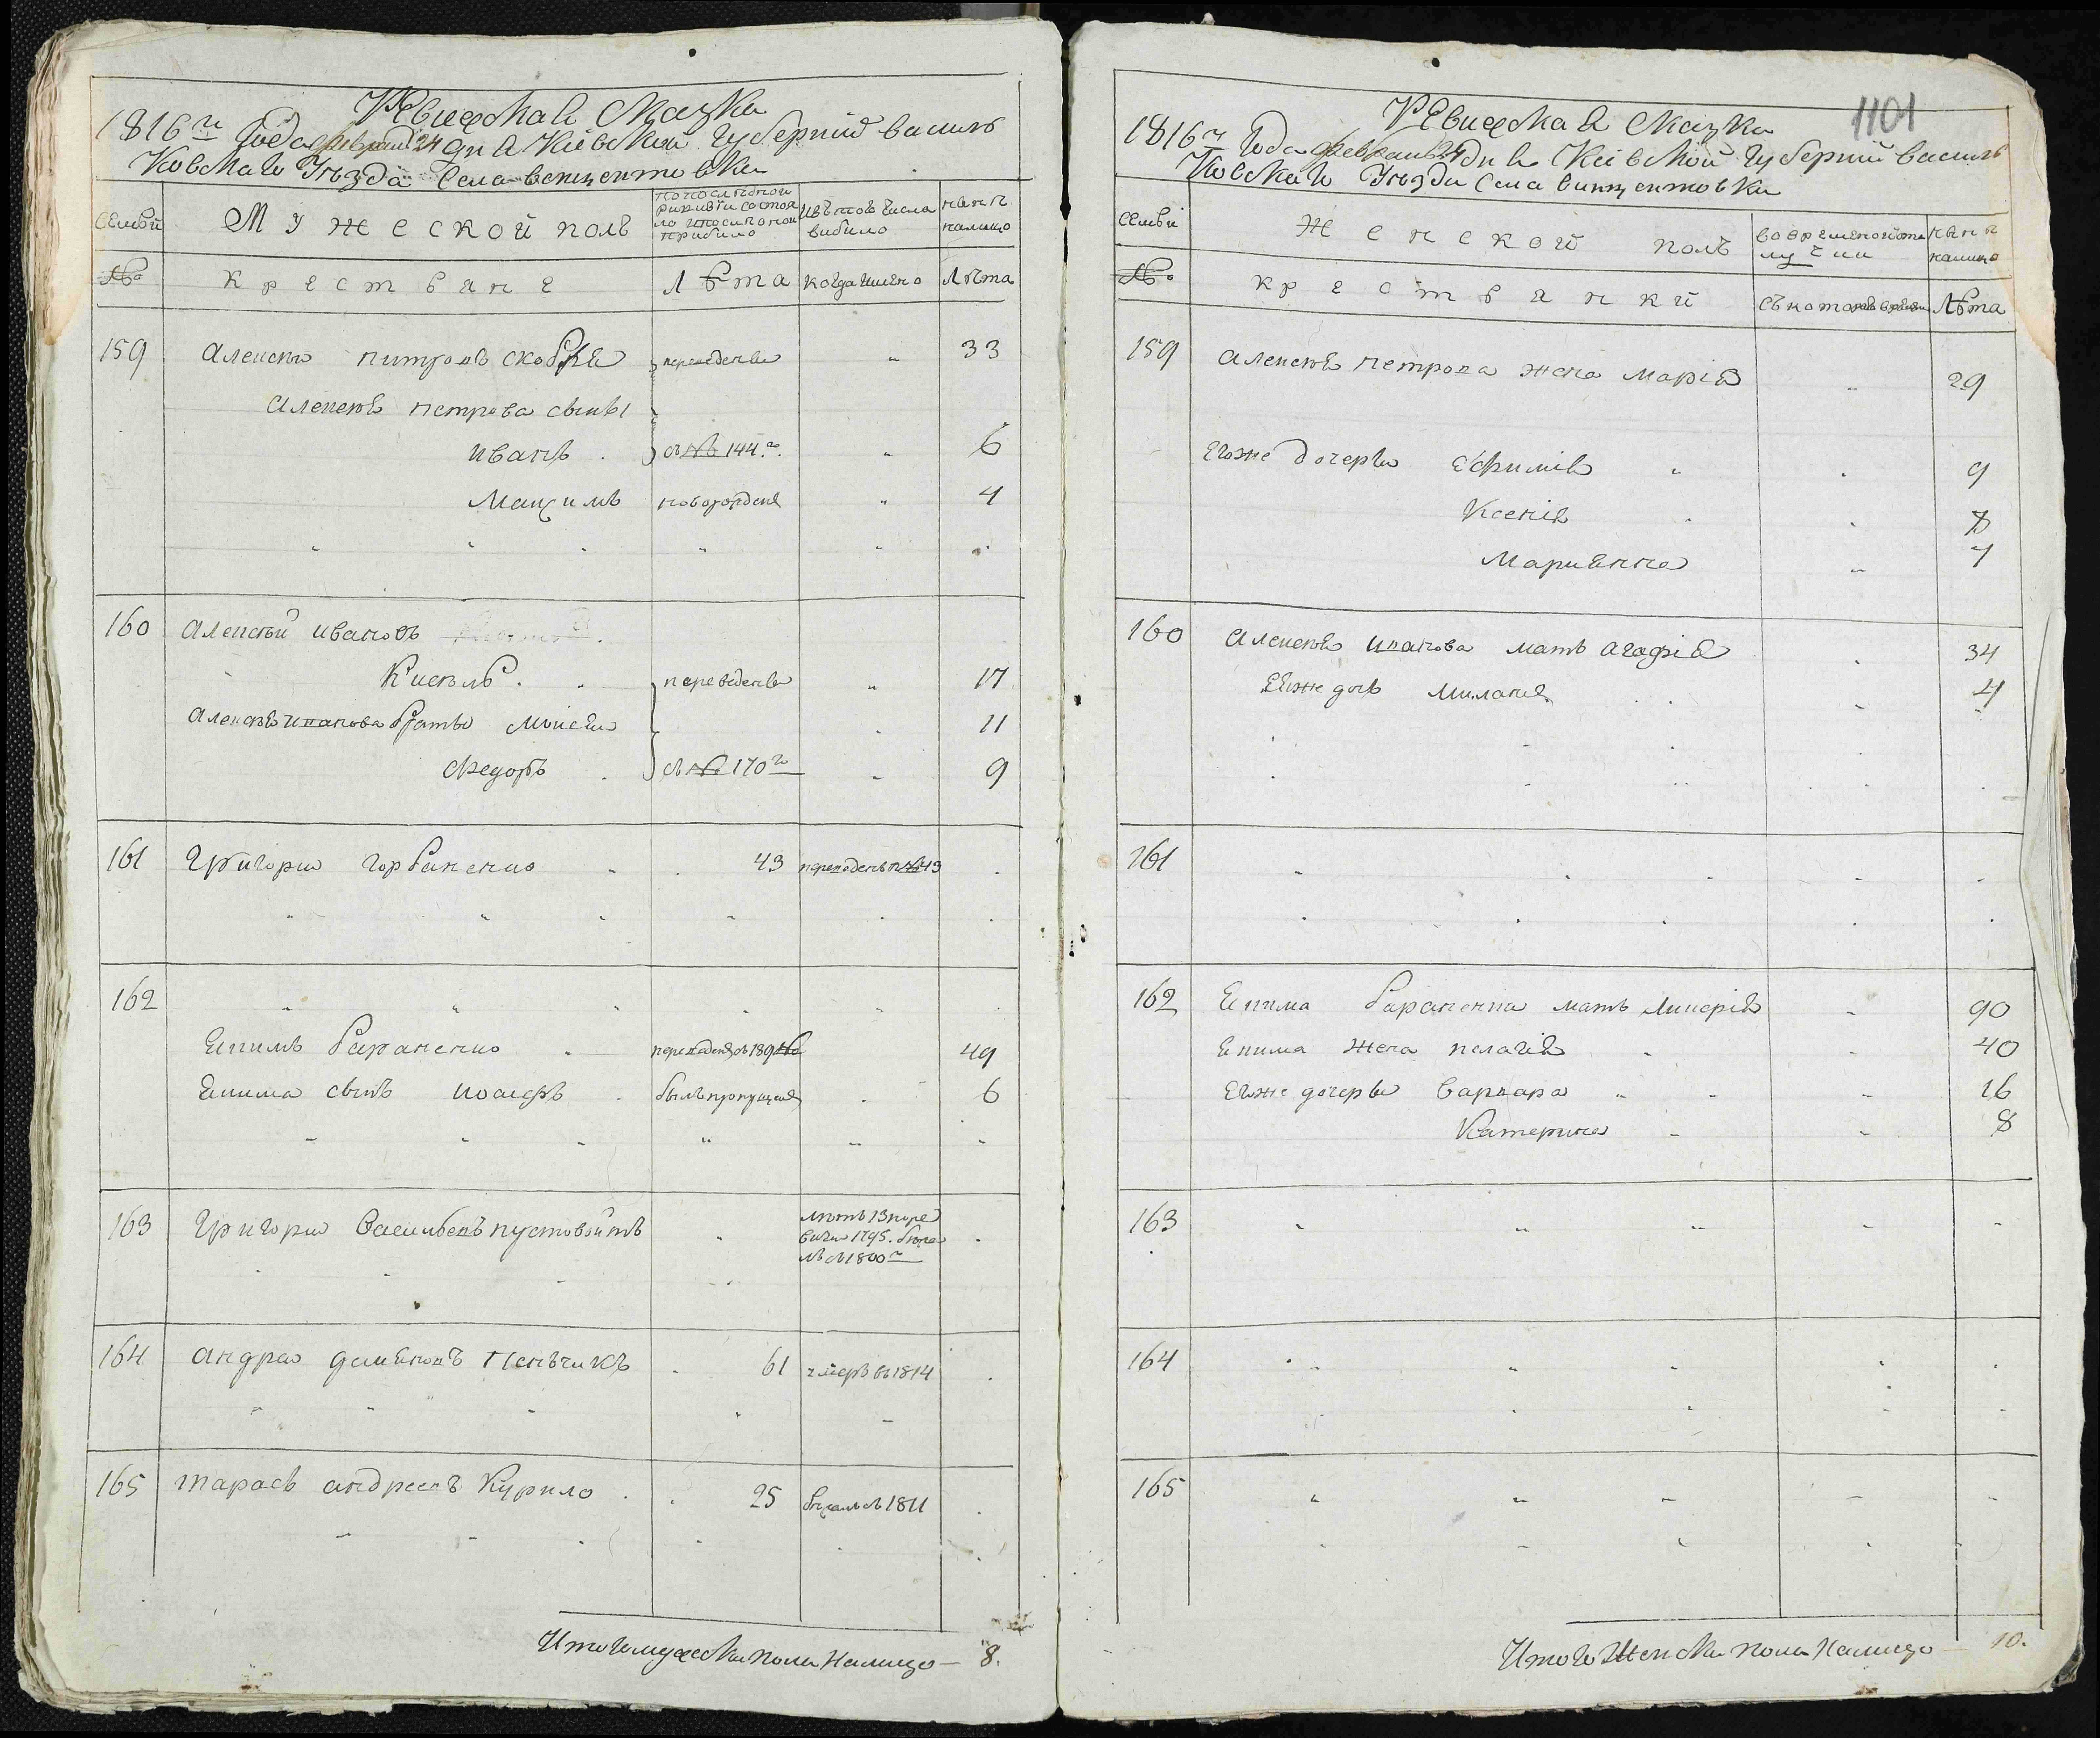 Ревижская Сказка
1816го Года февраля 24 дня Кіевской Губерніи василь
Ковскаго Уезда Села винцентовки
Семьи
Мужеской полъ
по последной ревизіи состояло и после оной прибыло
изъ того числа выбыло
ныне налицо
№
крестьяне
Лѣта
когда имено
Лѣта
159 Алексей питровъ скобля переведены " 33
Алексея петрова сыны
иванъ съ № 144го " 6
Максимъ новорожденъ " 4
160 Алексей ивановъ
Кисель переведены " 17
Алексея иванова братья Моисей 11
Федоръ съ № 170го 9
161 Григорий горбаненко 43 переведенъ № 43
162
Екимъ бараненко переведенъ съ 189 № 49
Екима сынъ иосифъ былъ пропущенъ 6
163 Григорий Васильевъ пустовойтъ
1795
съ 1800го
164 андрей демяновъ Пенъчикъ 61 умеръ въ 1814
165 тарасъ андреевъ Курило 25 бежалъ съ 1811
Итого мужеска пола Налицо — 8.
1101
Ревижская Сказка
1816го Года февраля 24 дня Кіевской Губерніи василь
Ковскаго Уезда Села винцентовки
Семьи
Женской полъ
во временной отлучки
ныне налицо
№
крестьянки
съ которого времени
Лѣта
159 алексея петрова жена Марія 29
Егоже дочеры Ефимія 9
Ксенія 8
Мариянна 7
160 Алексея иванова мать агафія 34
Еяже дочь Миланія 4
161
162 Екима бараненка мать Ликерія 90
Екима жена пелагія 40
Егоже дочеры Варвара 16
Катерина 8
163
164
165
Итого Женска пола Налицо — 10.